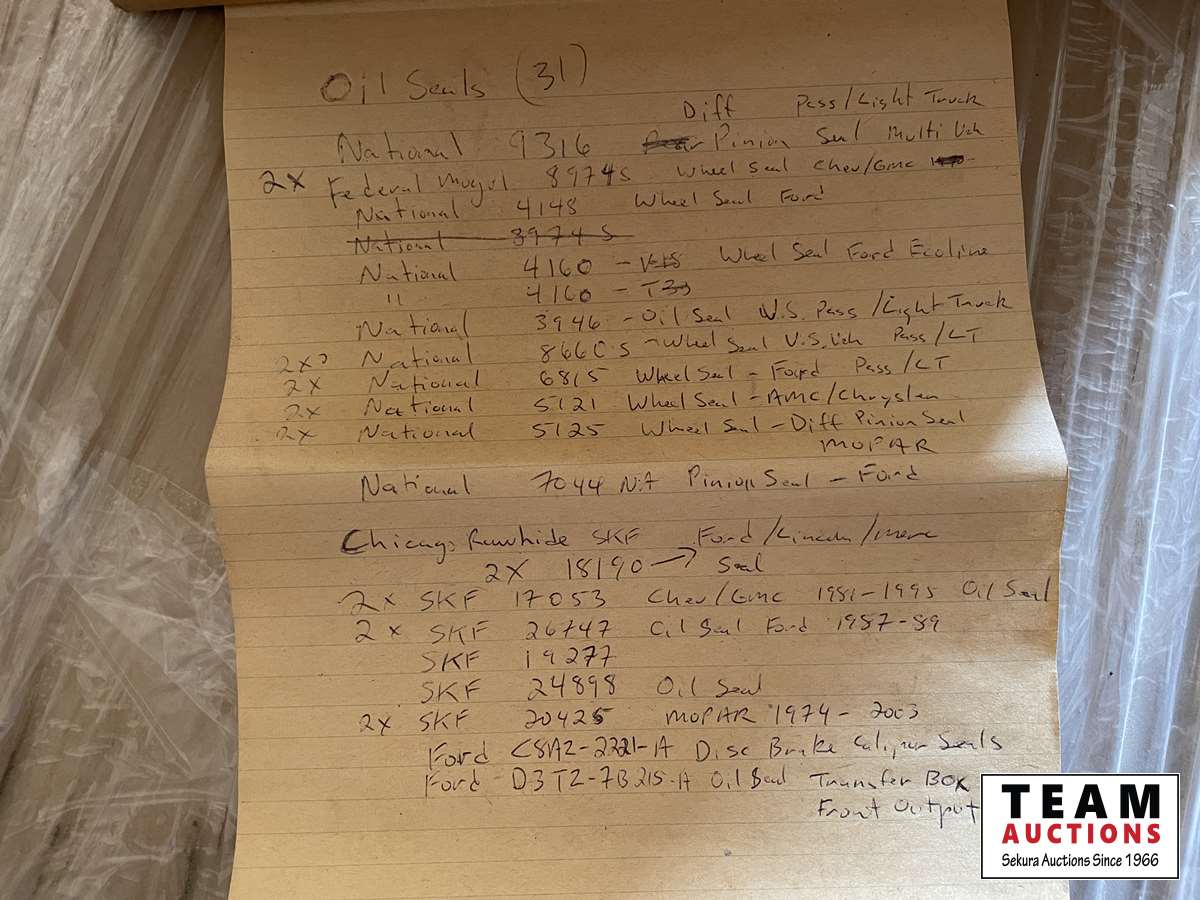 Oil Seals (31)
Diff Pass/Light Truck
National 9316 Pinion Seal Multi Veh
2X Federal Mogul 8974S Wheel Seal Chev/GMC
National 4148 Wheel Seal Ford
National 3974 S
National 4160 - V15 Wheel Seal Ford Ecoline
" 4160 -
National 3946 - Oil Seal U.S. Pass/Light Truck
2x? National 8660 S - Wheel Seal U.S. Veh Pass/LT
2x National 6815 Wheel Seal - Ford Pass/LT
2x National 5121 Wheel Seal - AMC/Chrysler
2x National 5125 Wheel Seal - Diff Pinion Seal
MOPAR
National 7044 NA Pinion Seal - Ford
Chicago Rawhide SKF Ford/Lincoln/Merc
2X 18190 → Seal
2x SKF 17053 Chev/GMC 1981-1995 Oil Seal
2x SKF 26747 Oil Seal Ford 1987-89
SKF 19277
SKF 24898 Oil Seal
2x SKF 20425 MOPAR 1974 - 2003
Ford C8AZ-2221-A Disc Brake Caliper Seals
Ford D3TZ-7B215-A Oil Seal Transfer Box
Front Output
TEAM
AUCTIONS
Sekura Auctions Since 1966